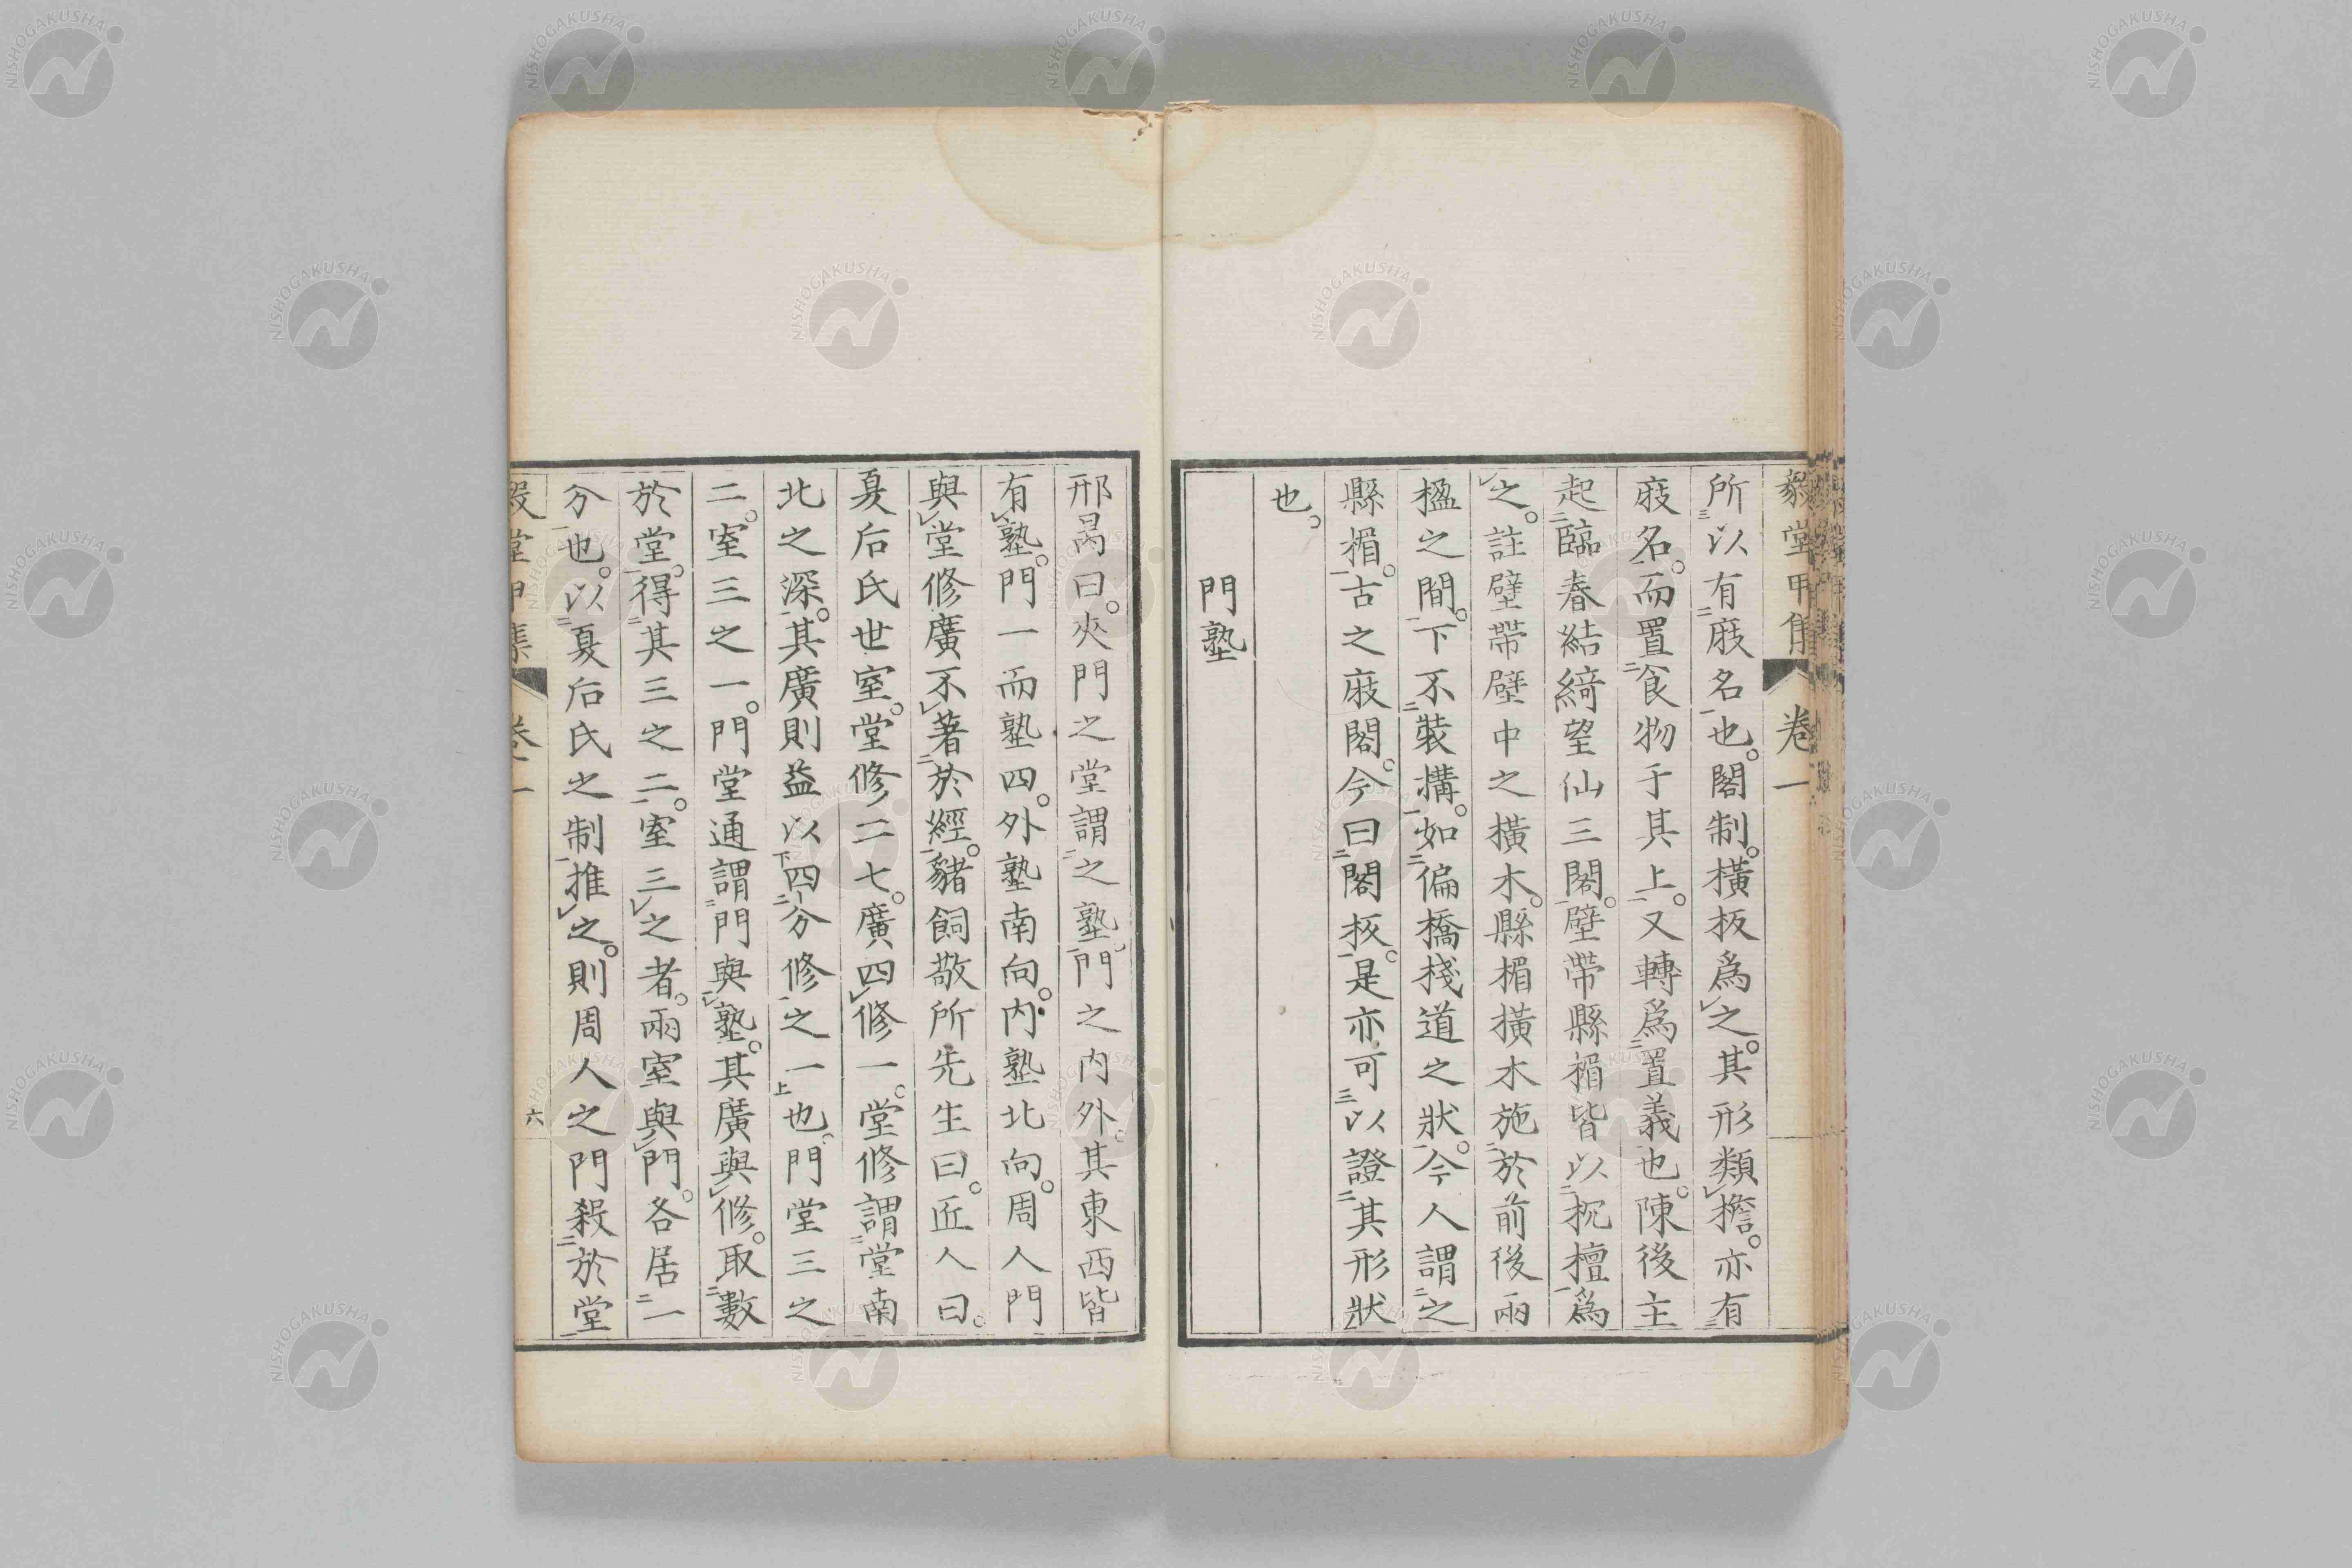 毅堂甲集 卷一
所以有庪名也。閣制。橫板爲之。其形類擔。亦有
庪名。而置食物于其上。又轉爲置義也。陳後主
起臨春結綺望仙三閣。壁帶縣楣皆以枕檀爲
之。註壁帶壁中之橫木。縣楣橫木施於前後兩
楹之間。下不裝構。如偏橋棧道之狀。今人謂之
縣楣。古之庪閣。今曰閣板。是亦可以證其形狀
也。
門塾
邢昺曰。夾門之堂謂之塾。門之內外。其東西皆
有塾。門一而塾四。外塾南向。內塾北向。周人門
與堂修廣不著於經。豬飼敬所先生曰。匠人曰。
夏后氏世室。堂修二七。廣四修一。堂修謂堂南
北之深。其廣則益以四分修之一也。門堂三之
二。室三之一。門堂通謂門與塾。其廣與修。取數
於堂。得其三之二。室三之者。兩室與門。各居一
分也。以夏后氏之制推之。則周人之門殺於堂
毅堂甲集 卷一 六
NISHOGAKUSHA